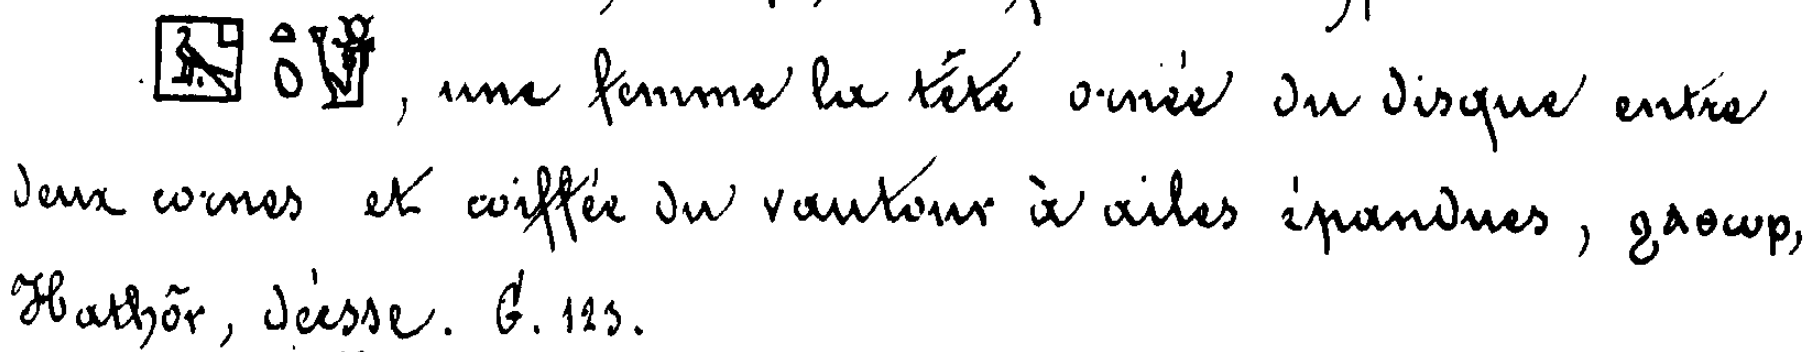 𓉡 𓏏 𓆇 , une femme la tête ornée du disque entre
deux cornes et coiffée du vautour à ailes épandues, ϩⲁⲑⲱⲣ,
Hathôr, déesse. G. 123.